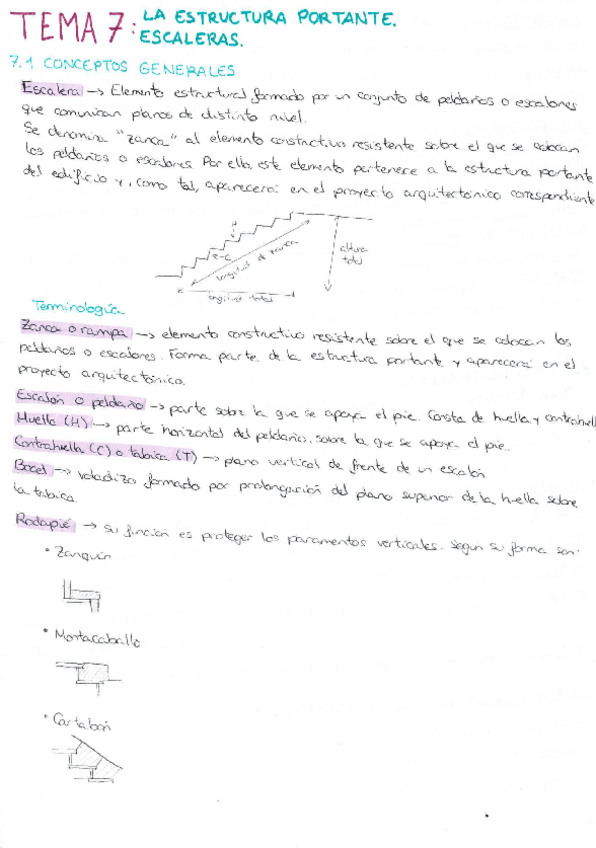 TEMA 7: LA ESTRUCTURA PORTANTE.
ESCALERAS.
7.1 CONCEPTOS GENERALES
Escalera → Elemento estructural formado por un conjunto de peldaños o escalones
que comunican planos de distinto nivel.
Se denomina "zanca" al elemento constructivo resistente sobre el que se colocan
los peldaños o escalones. Por ello, este elemento pertenece a la estructura portante
del edificio y, como tal, aparecerá en el proyecto arquitectónico correspondiente
H
R-C
longitud de zanca
altura
total
longitud
Terminología
Zanca o rampa → elemento constructivo resistente sobre el que se colocan los
peldaños o escalones. Forma parte de la estructura portante y aparecerá en el
proyecto arquitectónico.
Escalón o peldaño → parte sobre la que se apoya el pie. Consta de huella y contrahuell
Huella (H) → parte horizontal del peldaño, sobre la que se apoya el pie.
Contrahuella (C) o tabica (T) → plano vertical de frente de un escalón
Bocel → voladizo formado por prolongación del plano superior de la huella sobre
la tabica.
Rodapié → su función es proteger los paramentos verticales. Según su forma son:
• Zanquín
• Montacaballo
• Cartabón